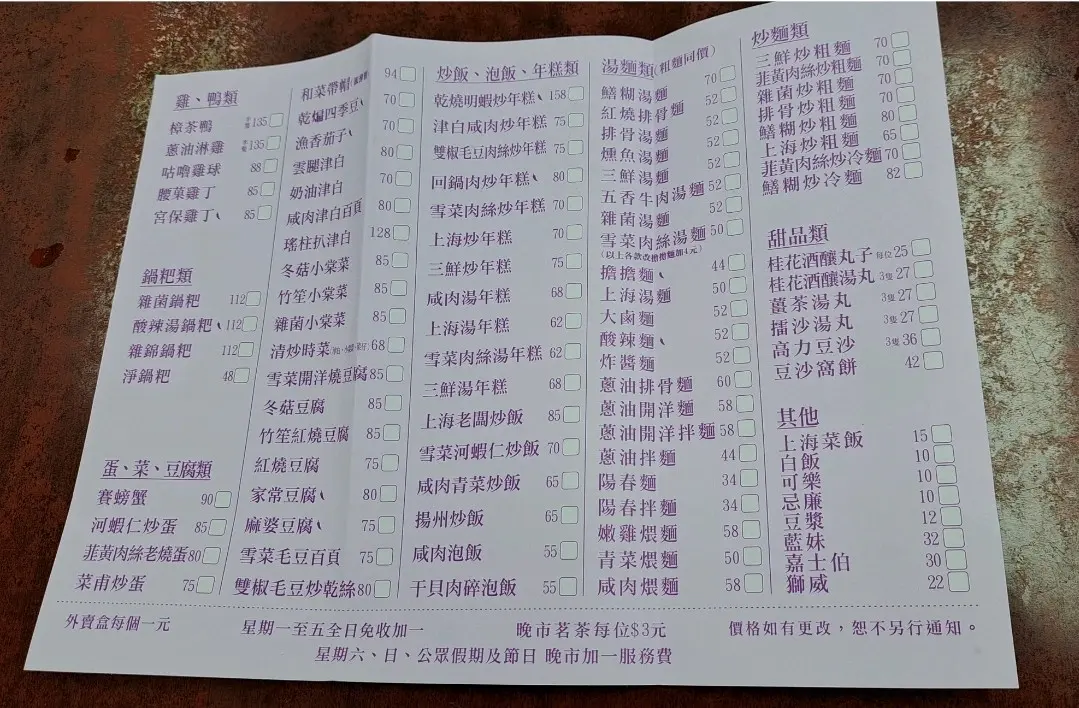 雞、鴨類
樟茶鴨 半隻135
蔥油淋雞 半隻135
咕嚕雞球 88
腰菓雞丁 85
宮保雞丁 85
鍋粑類
雜菌鍋粑 112
酸辣湯鍋粑 112
雜錦鍋粑 112
淨鍋粑 48
蛋、菜、豆腐類
賽螃蟹 90
河蝦仁炒蛋 85
韮黃肉絲老燒蛋 80
菜甫炒蛋 75
和菜帶帽 94
乾煸四季豆 70
漁香茄子 70
雲腿津白 80
奶油津白 70
咸肉津白百頁 80
瑤柱扒津白 128
冬菇小棠菜 85
竹笙小棠菜 85
雜菌小棠菜 85
清炒時菜 68
雪菜開洋燒豆腐 85
冬菇豆腐 85
竹笙紅燒豆腐 85
紅燒豆腐 75
家常豆腐 80
麻婆豆腐 75
雪菜毛豆百頁 75
雙椒毛豆炒乾絲 80
炒飯、泡飯、年糕類
乾燒明蝦炒年糕 158
津白咸肉炒年糕 75
雙椒毛豆肉絲炒年糕 75
回鍋肉炒年糕 80
雪菜肉絲炒年糕 70
上海炒年糕 70
三鮮炒年糕 75
咸肉湯年糕 68
上海湯年糕 62
雪菜肉絲湯年糕 62
三鮮湯年糕 68
上海老闆炒飯 85
雪菜河蝦仁炒飯 70
咸肉青菜炒飯 65
揚州炒飯 65
咸肉泡飯 55
干貝肉碎泡飯 55
湯麵類(粗麵同價)
鱔糊湯麵 70
紅燒排骨麵 52
排骨湯麵 52
燻魚湯麵 52
三鮮湯麵 52
五香牛肉湯麵 52
雜菌湯麵 52
雪菜肉絲湯麵 50
(以上各款改擔擔麵加4元)
擔擔麵 44
上海湯麵 50
大鹵麵 52
酸辣麵 52
炸醬麵 52
蔥油排骨麵 60
蔥油開洋麵 58
蔥油開洋拌麵 58
蔥油拌麵 44
陽春麵 34
陽春拌麵 34
嫩雞煨麵 58
青菜煨麵 50
咸肉煨麵 58
炒麵類
三鮮炒粗麵 70
韮黃肉絲炒粗麵 70
雜菌炒粗麵 70
排骨炒粗麵 70
鱔糊炒粗麵 80
上海炒粗麵 65
韮黃肉絲炒冷麵 70
鱔糊炒冷麵 82
甜品類
桂花酒釀丸子 每位25
桂花酒釀湯丸 3隻27
薑茶湯丸 3隻27
擂沙湯丸 3隻27
高力豆沙 3隻36
豆沙窩餅 42
其他
上海菜飯 15
白飯 10
可樂 10
忌廉 10
豆漿 12
藍妹 32
嘉士伯 30
獅威 22
外賣盒每個一元
星期一至五全日免收加一
晚市茗茶每位$3元
價格如有更改，恕不另行通知。
星期六、日、公眾假期及節日 晚市加一服務費